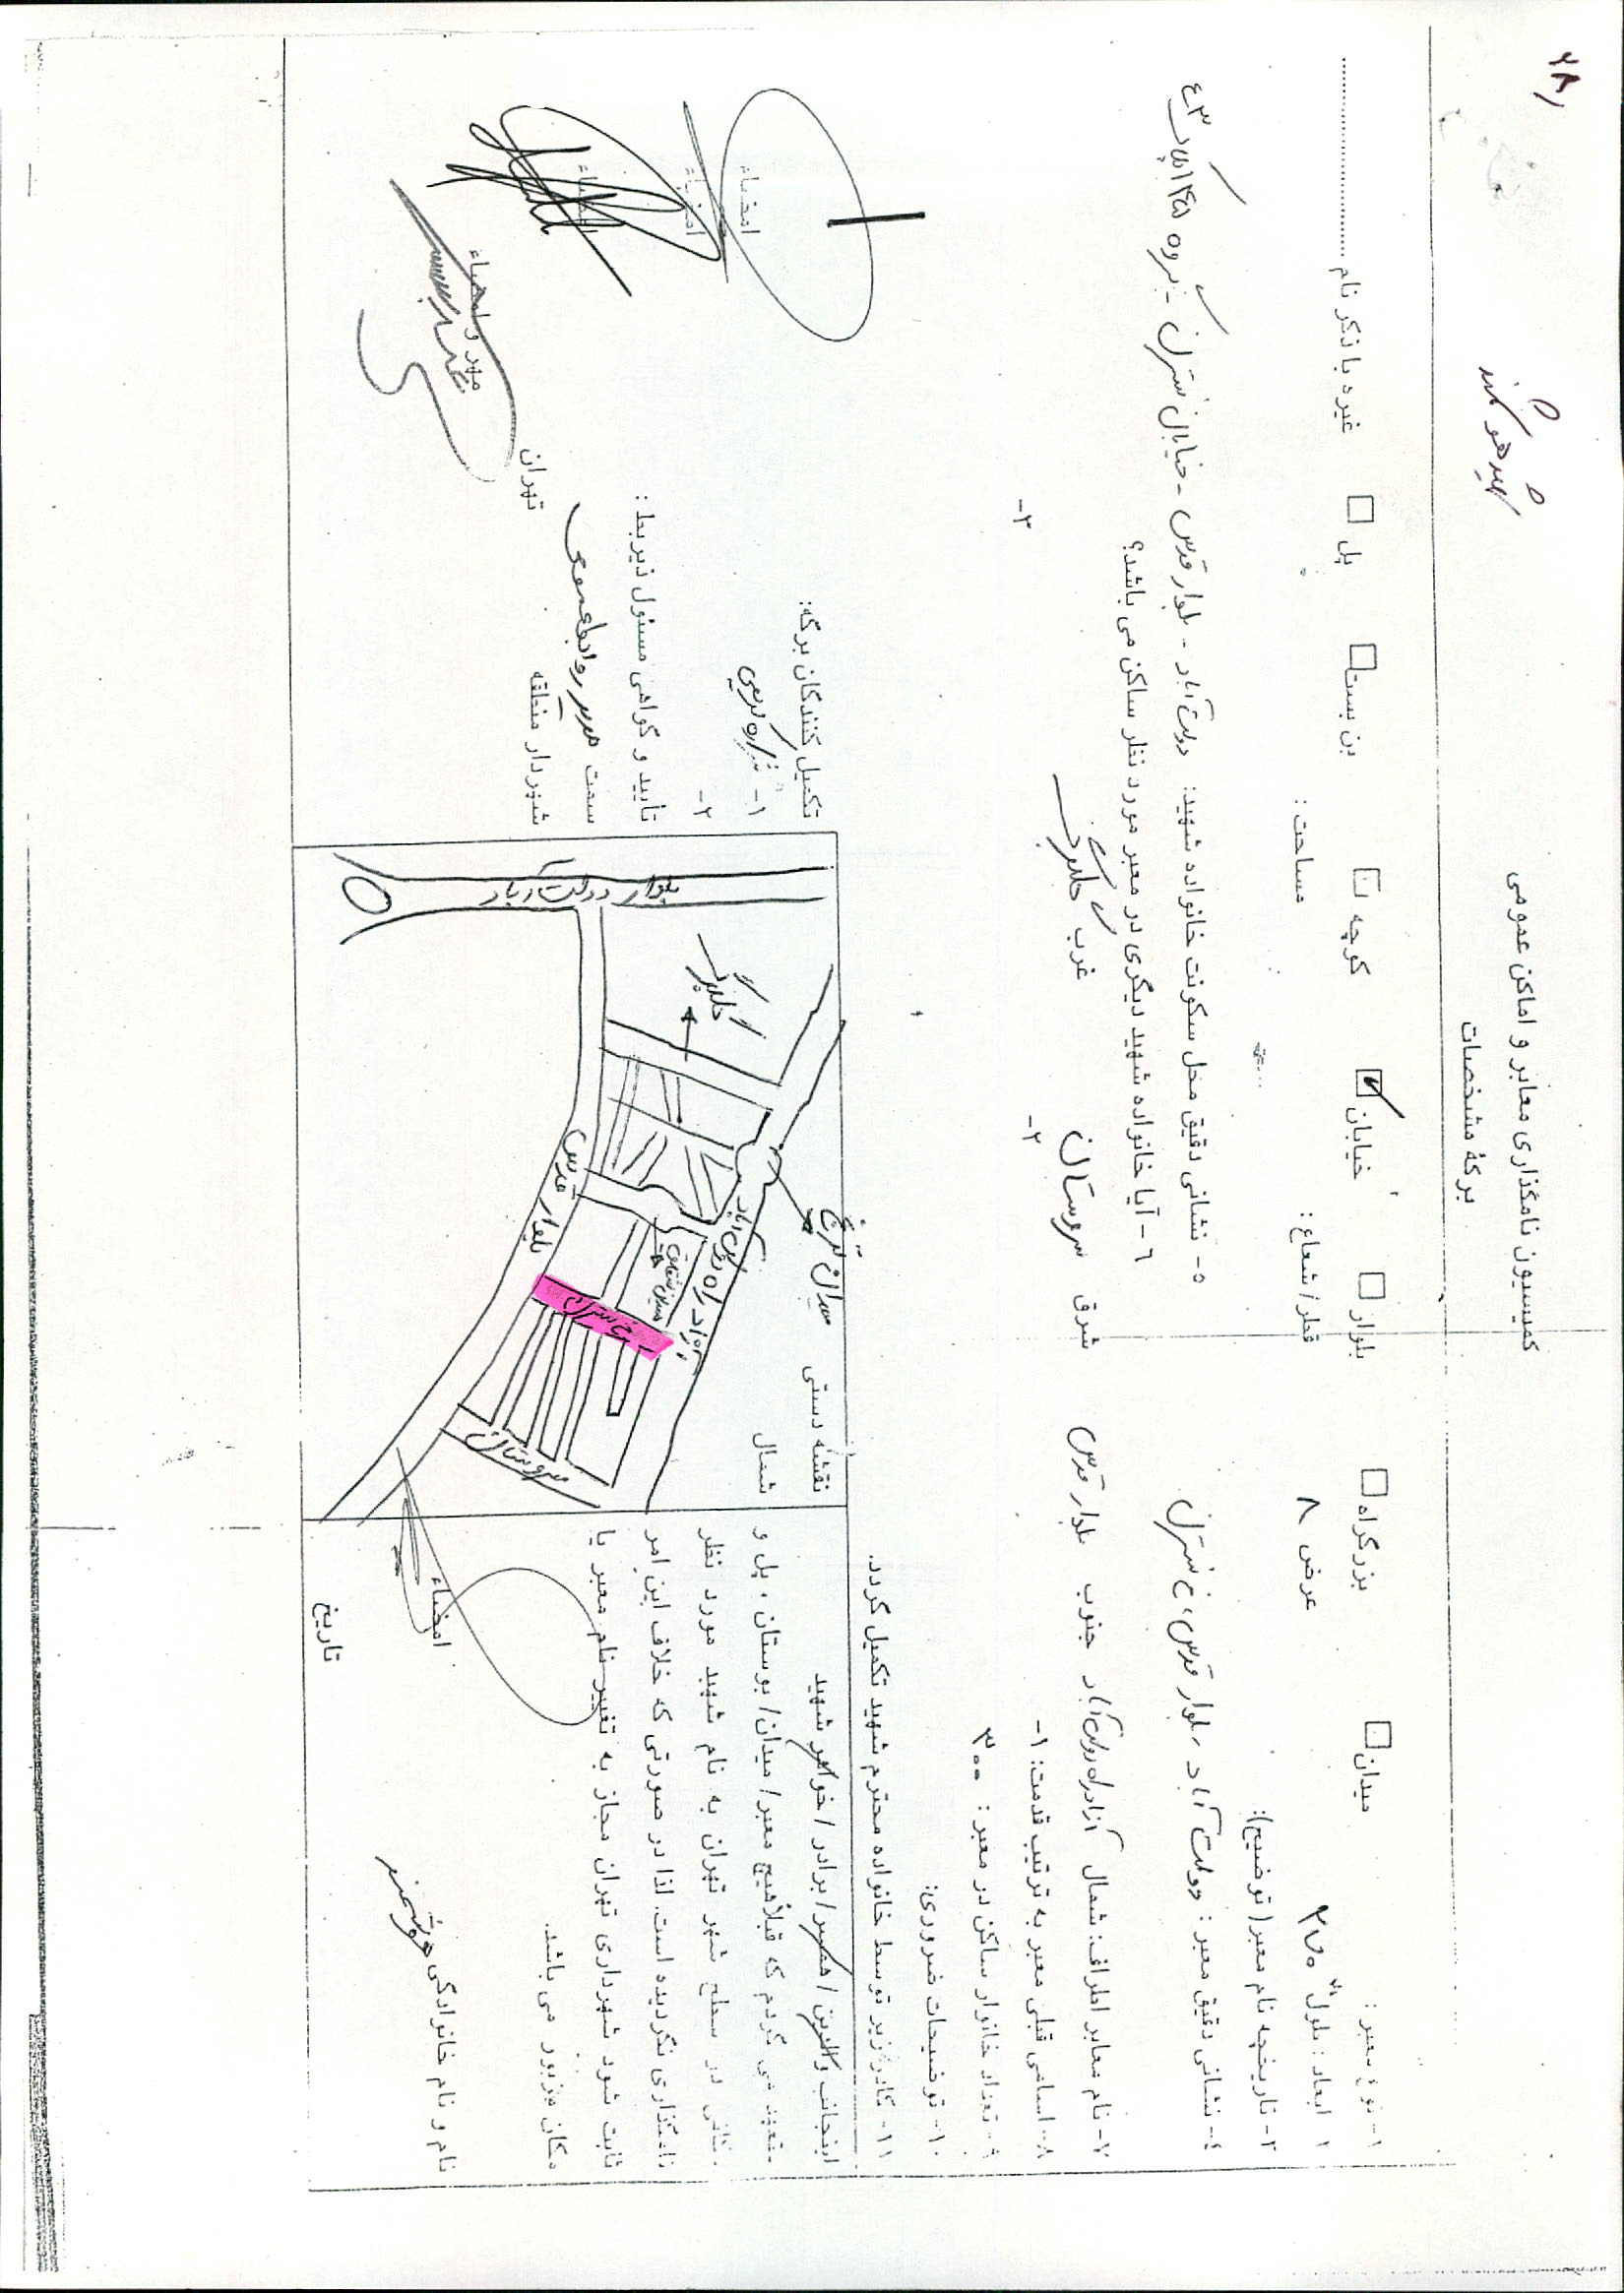 ۲۸/
شهید هوشمند
کمیسیون نامگذاری معابر و اماکن عمومی
برگه مشخصات
۱- نوع معبر: میدان بزرگراه بلوار خیابان کوچه بن بست پل غیره با ذکر نام
۲- ابعاد: طول ۲۷۰ عرض ۸ قطر/شعاع: مساحت:
۳- تاریخچه نام معبر (توضیح):
۴- نشانی دقیق معبر: دولت آباد، بلوار قدس، خ نسترن
۵- نشانی دقیق محل سکونت خانواده شهید: دولت آباد - بلوار قدس - خیابان نسترن - پلاک ۴۳
۶- آیا خانواده شهید دیگری در معبر مورد نظر ساکن می باشد؟
۷- نام معابر اطراف: شمال آزادراه دولت آباد جنوب بلوار قدس شرق سروستان غرب
۸- اسامی قبلی معبر به ترتیب قدمت: ۱- ۲- ۳-
۹- تعداد خانوار ساکن در معبر: ۳۰۰
۱۰- توضیحات ضروری:
۱۱- کادر زیر توسط خانواده محترم شهید تکمیل گردد.
اینجانب والدین / همسر / برادر / خواهر شهید
متعهد می گردم که قبلاً هیچ معبر / میدان / بوستان، پل و
مکانی در سطح شهر تهران به نام شهید مورد نظر
نامگذاری نگردیده است. لذا در صورتی که خلاف این امر
ثابت شود شهرداری تهران مجاز به تغییر نام معبر یا
مکان مزبور می باشد.
نام و نام خانوادگی هوشمند امضاء
تاریخ
نقشه دستی
شمال
بلوار دولت آباد
بلوار قدس
خ نسترن
سروستان
تکمیل کنندگان برگه:
۱- امضاء
۲- امضاء
تأیید و گواهی مسئول ذیربط:
سمت مدیر روابط عمومی امضاء
شهردار منطقه تهران مهر و امضاء